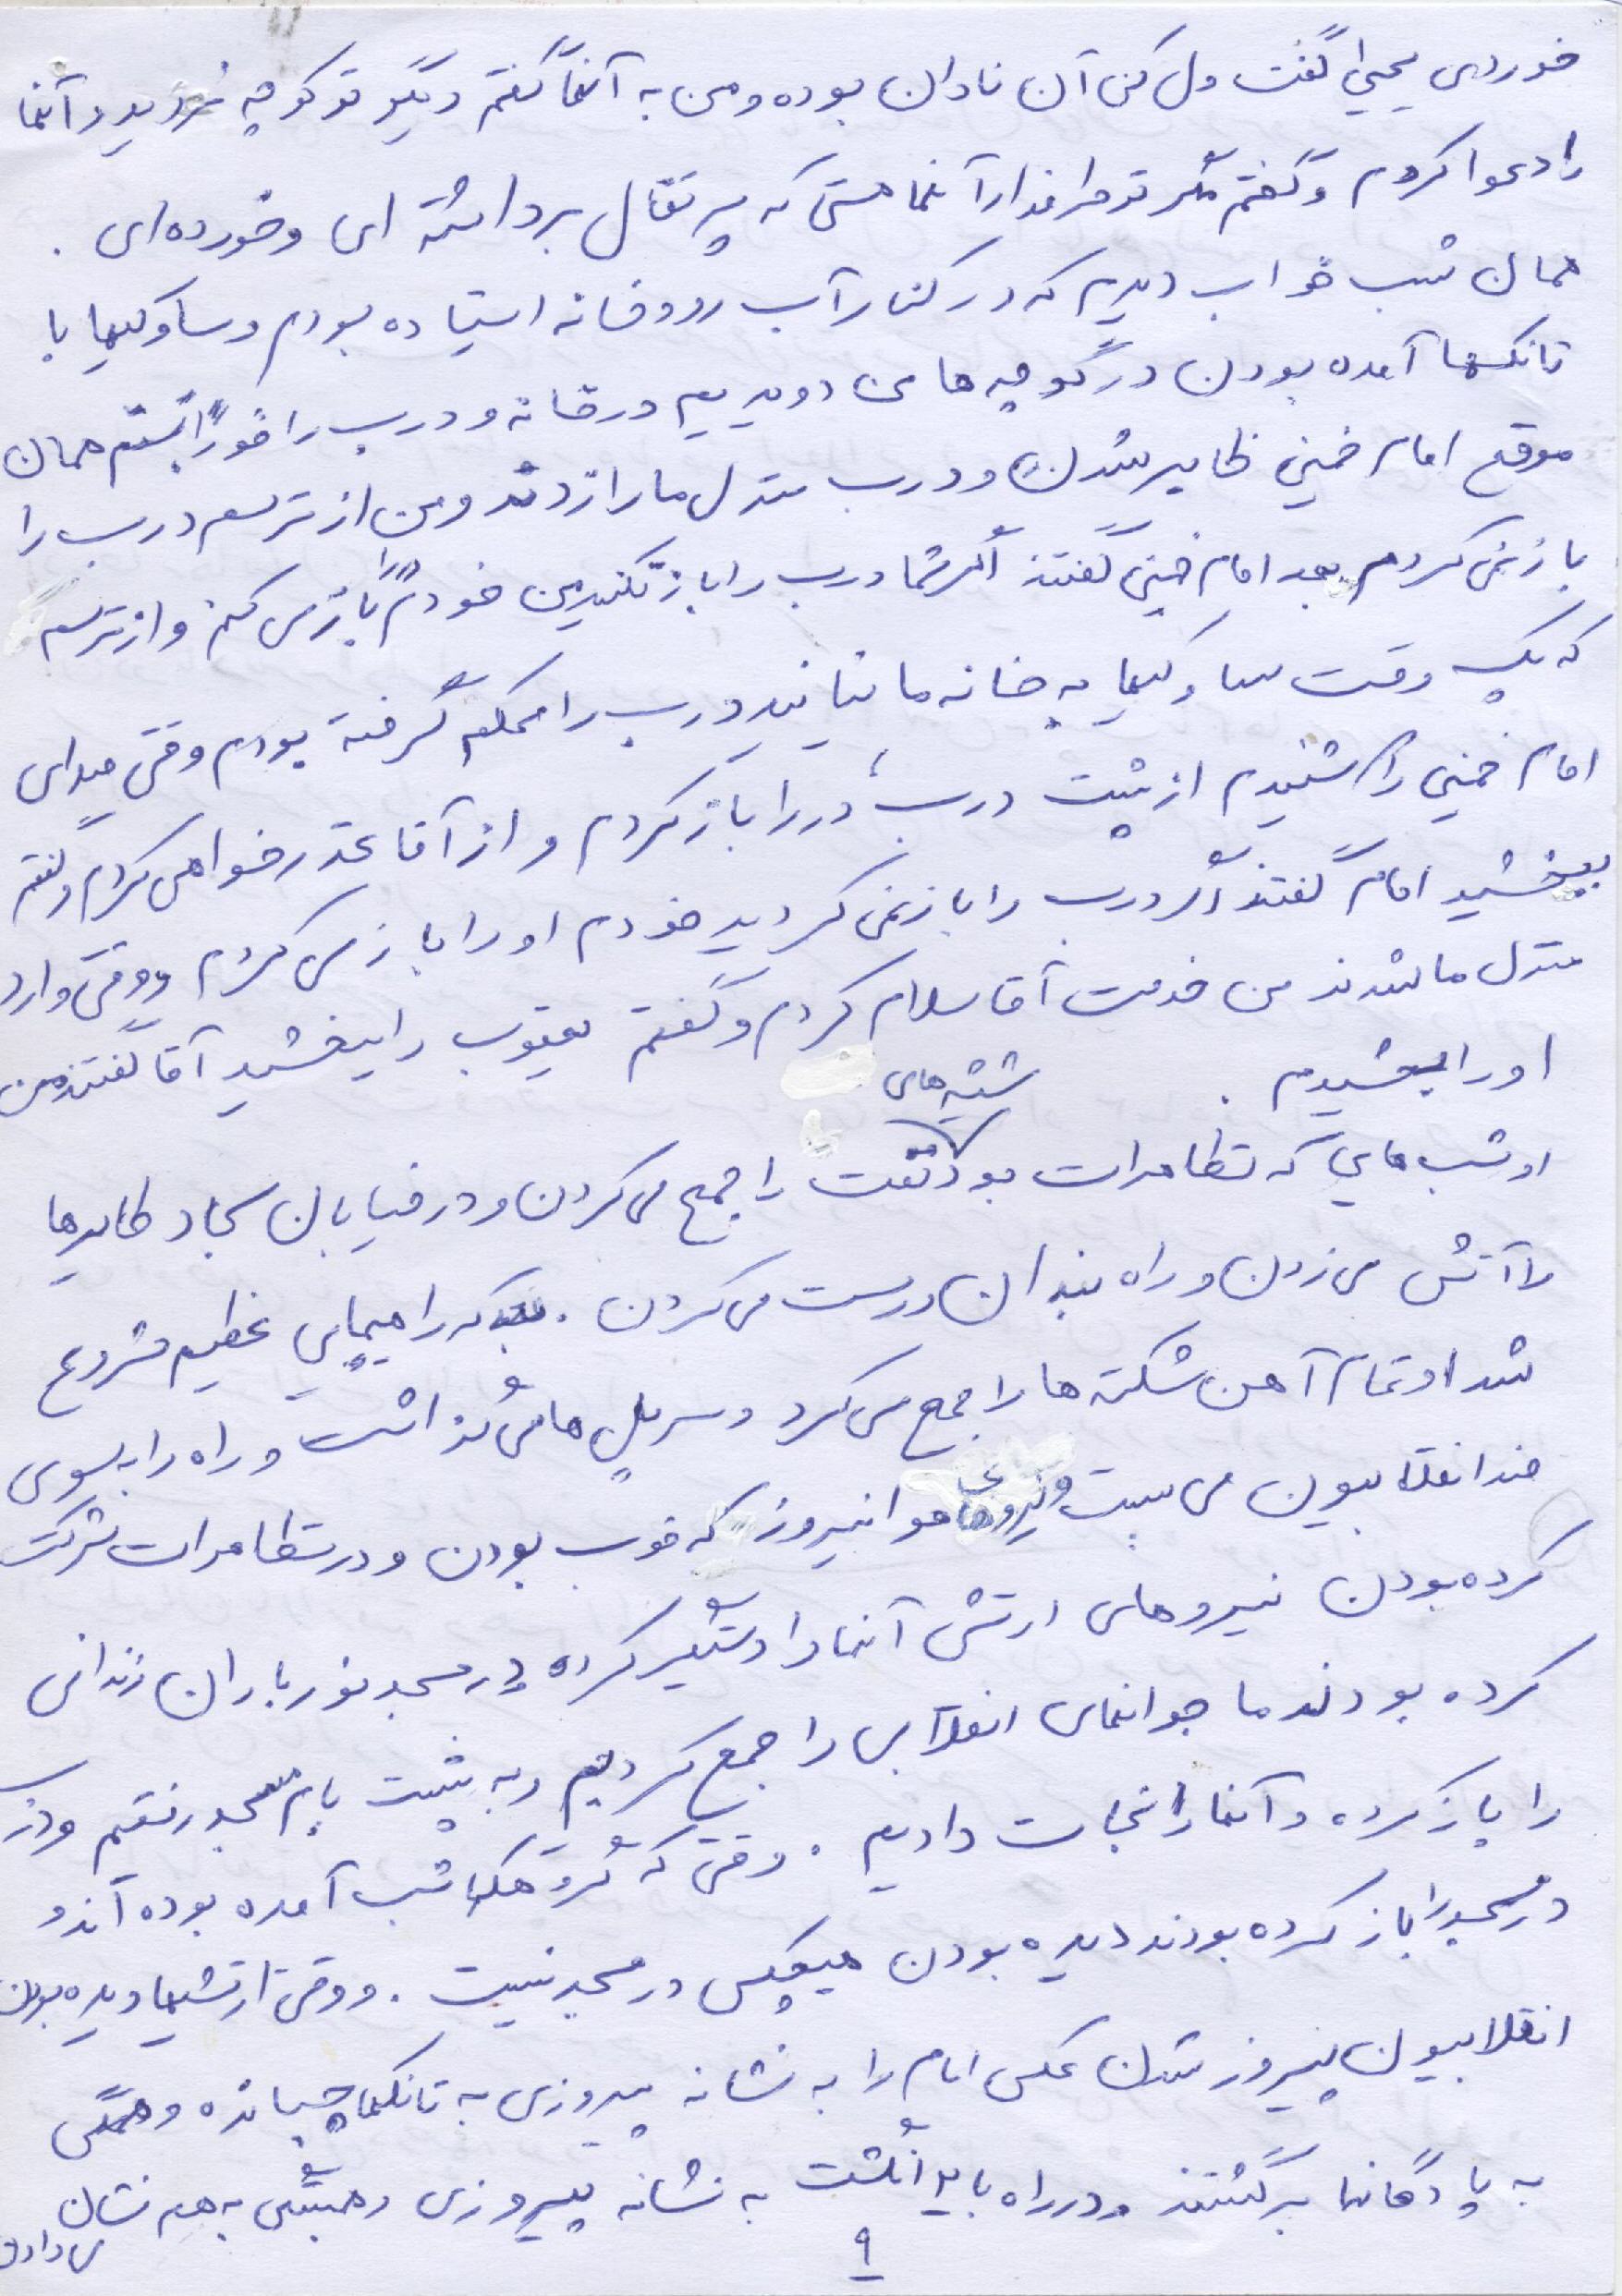 خوردی یحیی گفت ول کن آن نادان بوده و من به آنها گفتم دیگر تو کوچه نروید و آنها
را دعوا کردم و گفتم مگر تو طرفدار آنها هستی که پرتقال برداشته ای و خورده‌ای .
همان شب خواب دیدم که در کنار آب رودخانه ایستاده بودم و ساوکیها با
تانکها آمده بودن در کوچه ها می دویدیم در خانه و درب را فوراً بستم همان
موقع امام خمینی ظاهر شدن و درب منزل ما را زدند و من از ترسم درب را
باز نمی کردم بعد امام خمینی گفتند اگر شما درب را باز نکنید من خودم باز می کنم و از ترسم
که یک وقت ساوکیها به خانه ما نیایند درب را محکم گرفته بودم وقتی صدای
امام خمینی را شنیدم از پشت درب، در را باز کردم و از آقا عذر خواهی کردم و گفتم
ببخشید امام گفتند اگر درب را باز نمی کردید خودم او را باز می کردم و وقتی وارد
منزل ما شدند من خدمت آقا سلام کردم و گفتم یعقوب را ببخشید آقا گفتند من
او را بخشیدم .
شیشه های
او شب هایی که تظاهرات بود نفت را جمع می کردن و در خیابان سجاد طایرها
را آتش می زدن و راه بندان درست می کردن . که راهپیمایی عظیم شروع
شد او تمام آهن شکته ها را جمع می کرد و سر پل ها می گذاشت و راه را به سوی
ضد انقلابیون می بست و نیروهای هوانیروز که خوب بودن و در تظاهرات شرکت
کرده بودن نیروهای ارتش آنها را دستگیر کرده در مسجد نور باران زندانی
کرده بودند ما جوانهای انقلابی را جمع کردیم و به پشت بام مسجد رفتیم و درب
را باز کرده و آنها را نجات دادیم . وقتی که گروهک شب آمده بوده اند و
در مسجد را باز کرده بودند دیده بودن هیچکس در مسجد نیست . و وقتی ارتشیها دیده بودن
انقلابیون پیروز شدن عکس امام را به نشانه پیروزی به تانکها چسبانده و همگی
به پادگانها برگشتند و در راه با دو انگشت به نشانه پیروزی و همبستگی به هم نشان
می دادن
۹